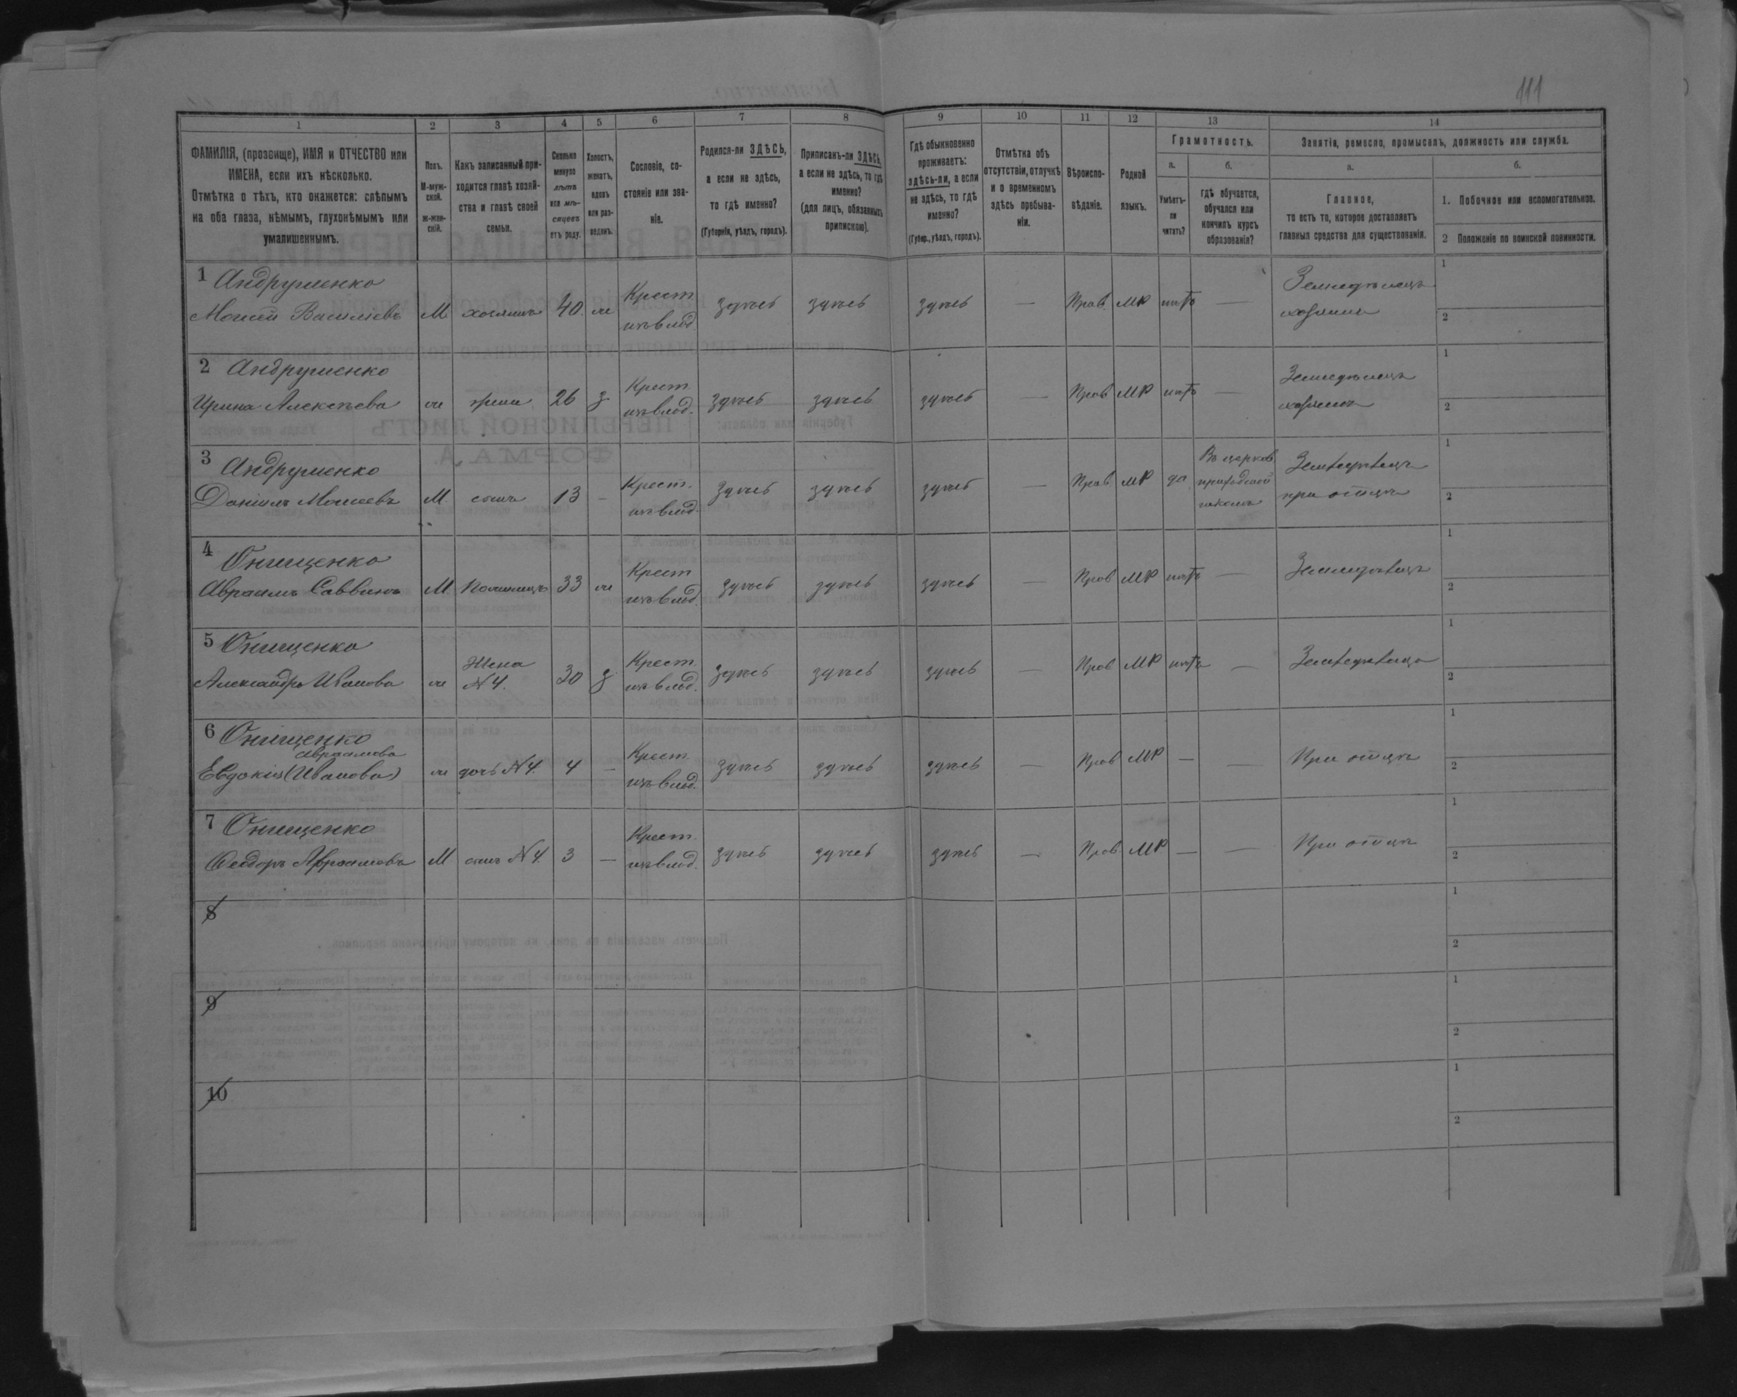 111
1 2 3 4 5 6 7 8 9 10 11 12 13 14
ФАМИЛІЯ, (прозвище), ИМЯ и ОТЧЕСТВО или
ИМЕНА, если ихъ нѣсколько.
Отмѣтка о тѣхъ, кто окажется: слѣпымъ
на оба глаза, нѣмымъ, глухонѣмымъ или
умалишеннымъ.
Полъ.
М-муж-
ской.
ж-жен-
скій.
Какъ записанный при-
ходится главѣ хозяй-
ства и главѣ своей
семьи.
Сколько
минуло
лѣтъ
или мѣ-
сяцевъ
отъ роду.
Холостъ,
женатъ,
вдовъ
или раз-
веденъ.
Сословіе, со-
стояніе или зва-
ніе.
Родился-ли ЗДѢСЬ,
а если не здѣсь,
то гдѣ именно?
(Губернія, уѣздъ, городъ).
Приписанъ-ли ЗДѢСЬ,
а если не здѣсь, то гдѣ
именно?
(для лицъ, обязанныхъ
припискою).
Гдѣ обыкновенно
проживаетъ:
здѣсь-ли, а если
не здѣсь, то гдѣ
именно?
(Губер., уѣздъ, городъ).
Отмѣтка объ
отсутствіи, отлучкѣ
и о временномъ
здѣсь пребыва-
ніи.
Вѣроиспо-
вѣданіе.
Родной
языкъ.
Грамотность.
а. б.
Умѣетъ-
ли
читать?
гдѣ обучается,
обучался или
кончилъ курсъ
образованія?
Занятія, ремесло, промыселъ, должность или служба.
а. б.
Главное,
то есть то, которое доставляетъ
главныя средства для существованія.
1. Побочное или вспомогательное.
2 Положеніе по воинской повинности.
1 Андрущенко Крест. Земледѣлецъ 1
Моисей Васильевъ М хозяинъ 40 ж изъ влад. здѣсь здѣсь здѣсь — Прав. МР нѣтъ — хозяинъ 2
2 Андрущенко Крест. Земледѣлецъ 1
Ирина Алексѣева ж жена 26 з изъ влад. здѣсь здѣсь здѣсь — Прав. МР нѣтъ — 2
3 Андрущенко Крест. Въ церков. Земледѣлецъ 1
Даніилъ Моисеевъ М сынъ 13 — изъ влад. здѣсь здѣсь здѣсь — Прав. МР да приходской школѣ при отцѣ 2
4 Онищенко Крест. Земледѣлецъ 1
Авраамъ Саввинъ М 33 ж изъ влад. здѣсь здѣсь здѣсь — Прав МР нѣтъ — 2
5 Онищенко Жена Крест. Земледѣлецъ 1
Александра Иванова ж N4. 30 з изъ влад. здѣсь здѣсь здѣсь — Прав МР нѣтъ — 2
6 Онищенко Крест. 1
Авраамова
Евдокія (Иванова) ж дочь N4. 4 — изъ влад. здѣсь здѣсь здѣсь — Прав МР — — При отцѣ 2
7 Онищенко Крест. 1
Ѳеодоръ Авраамовъ М сынъ N4. 3 — изъ влад. здѣсь здѣсь здѣсь — Прав МР — — При отцѣ 2
8 1
2
9 1
2
10 1
2